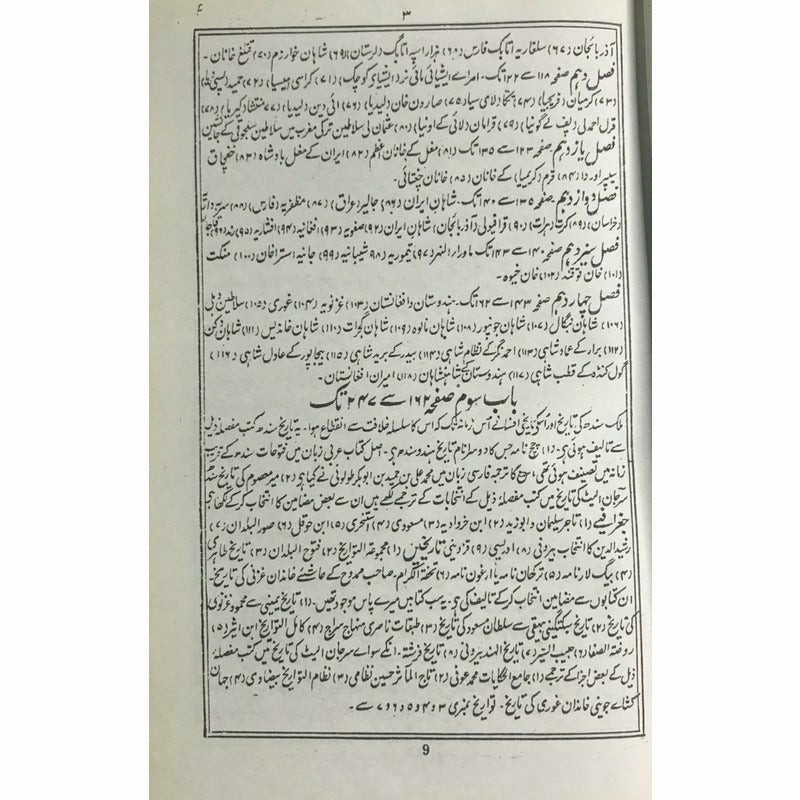 ۳
آذربائجان (۶۷) سلغاریہ اتابک فارس (۶۸) ہزار اسپہ اتابگ لرستان (۶۹) شاہان خوارزم (۷۰) قتلغ خانان۔
فصل دہم صفحہ ۱۱۸ سے ۱۲۲ تک۔ امراے ایشیائی مائی نر ایشیای کوچک (۷۱) کراسی (میسیا) (۷۲) حمید (پسیدیا)
(۷۳) کرمیان (فریجیا) (۷۴) (۷۵) صارو خان (لیدیا) (۷۶) ائی دین (لیدیا) (۷۷) منتشا (کیریا) (۷۸)
قزل احمدلی (پیف لے گونیا) (۷۹) قرامان (لائی کے اونیا) (۸۰) عثمان لی سلاطین ترکی مغرب میں سلاطین سلجوقی کے جانشین
فصل یازدہم صفحہ ۱۲۳ سے ۱۳۵ تک (۸۱) مغل کے خانان اعظم (۸۲) ایران کے مغل بادشاہ (۸۳) خفچاق
سیپر اوردا (۸۴) قرم (کریمیا) کے خانان (۸۵) خانان چغتائی۔
فصل دوازدہم صفحہ ۱۳۵ سے ۱۴۰ تک۔ شاہان ایران (۸۶) جالیر (عراق) (۸۷) مظفریہ (فارس) (۸۸) سربداریہ
(خراسان) (۸۹) کرت (ہرات) (۹۰) قراقیولی آذربائجان (۹۱) شاہان ایران (۹۲) صفویہ (۹۳) افغانیہ (۹۴) افشاریہ (۹۵) زند (۹۶) قاچار
فصل سیزدہم صفحہ ۱۴۰ سے ۱۴۳ تک ماوراء النہر (۹۷) تیموریہ (۹۸) شیبانیہ (۹۹) جانیہ استراخان (۱۰۰) منکت
(۱۰۱) خان خوقند (۱۰۲) خان خیوہ۔
فصل چہاردہم صفحہ ۱۴۳ سے ۱۶۲ تک۔ ہندوستان و افغانستان (۱۰۳) غزنویہ (۱۰۴) غوری (۱۰۵) سلاطین دہلی
(۱۰۶) شاہان بنگال (۱۰۷) شاہان جونپور (۱۰۸) شاہان مالوہ (۱۰۹) شاہان گجرات (۱۱۰) شاہان خاندیس (۱۱۱) شاہان دکن
(۱۱۲) برار کے عماد شاہی (۱۱۳) احمد نگر کے نظام شاہی (۱۱۴) بیدر کے برید شاہی (۱۱۵) بیجاپور کے عادل شاہی (۱۱۶)
گول کنڈہ کے قطب شاہی (۱۱۷) ہندوستان کے شاہنشاہان (۱۱۸) امیران افغانستان۔
باب سوم صفحہ ۱۶۲ سے ۲۴۷ تک
ملک سندھ کی تاریخ اور اسکی تاریخی افسانے اُس زمانہ تک کہ اس کا سلسلہ خلافت سے انقطاع ہوا۔ یہ تاریخ سندھ کتب مفصلہ ذیل
سے تالیف ہوئی ہی۔ (۱) چچ نامہ جس کا دوسرا نام تاریخ ہند و سندھ ہی۔ اصل کتاب عربی زبان میں فتوحات سندھ کے قریب
زمانہ میں تصنیف ہوئی تھی اسکا ترجمہ فارسی زبان میں محمد علی بن حمید بن ابوبکر کوفی نے کیا ہی (۲) میر معصوم کی تاریخ سندھ
سرجان الیٹ کی تاریخ میں کتب مفصلہ ذیل کے انتخابات کے ترجمے لکھے ہیں ان سے بعض مضامین کا انتخاب کر کے لکھا ہی
جغرافیے (۱) تاجر سلیمان و ابوزید (۲) ابن خرداد بہ (۳) مسعودی (۴) استخری (۵) ابن حوقل (۶) صور البلدان (۷)
رشید الدین کا انتخاب بیرونی (۸) ادریسی (۹) قزوینی تاریخیں (۱) مجموعۃ التواریخ (۲) فتوح البلدان (۳) تاریخ طاہری
(۴) بیگ لار نامہ (۵) ترخان نامہ یا ارغون نامہ (۶) تحفۃ الکرام۔ صاحب ممدوح کے حاشئے خاندان غزنی کی تاریخ۔
ان کتابوں سے مضامین انتخاب کر کے تالیف کی ہی۔ یہ سب کتابیں میرے پاس موجود تھیں۔ (۱) تاریخ یمینی سے محمود غزنوی
کی تاریخ (۲) تاریخ سبکتگینی بیہقی سے سلطان مسعود کی تاریخ (۳) طبقات ناصری منہاج سراج (۴) کامل التواریخ ابن اثیر (۵)
روضۃ الصفا (۶) حبیب السیر (۷) تاریخ الہند بیرونی (۸) تاریخ فرشتہ۔ انکے سوا سے سرجان الیٹ کی تاریخ میں کتب مفصلہ
ذیل کے بعض اجزا کے ترجمے (۱) جامع الحکایات محمد عوفی (۲) تاج المآثر حسین نظامی (۳) نظام التواریخ بیضاوی (۴) جہان
کشاے جوینی خاندان غوری کی تاریخ۔ تواریخ نمبری ۳ و ۴ و ۵ و ۶ و ۷ سے۔
9